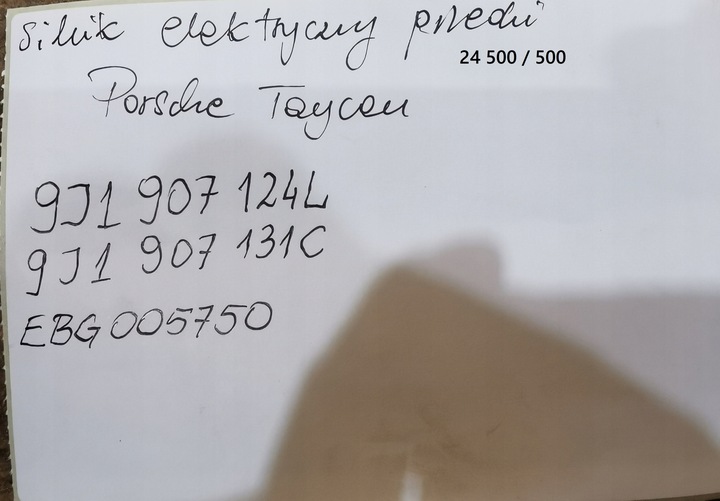 silnik elektryczny przedni
24 500 / 500
Porsche Taycan
9J1 907 124L
9J1 907 131C
EBG005750